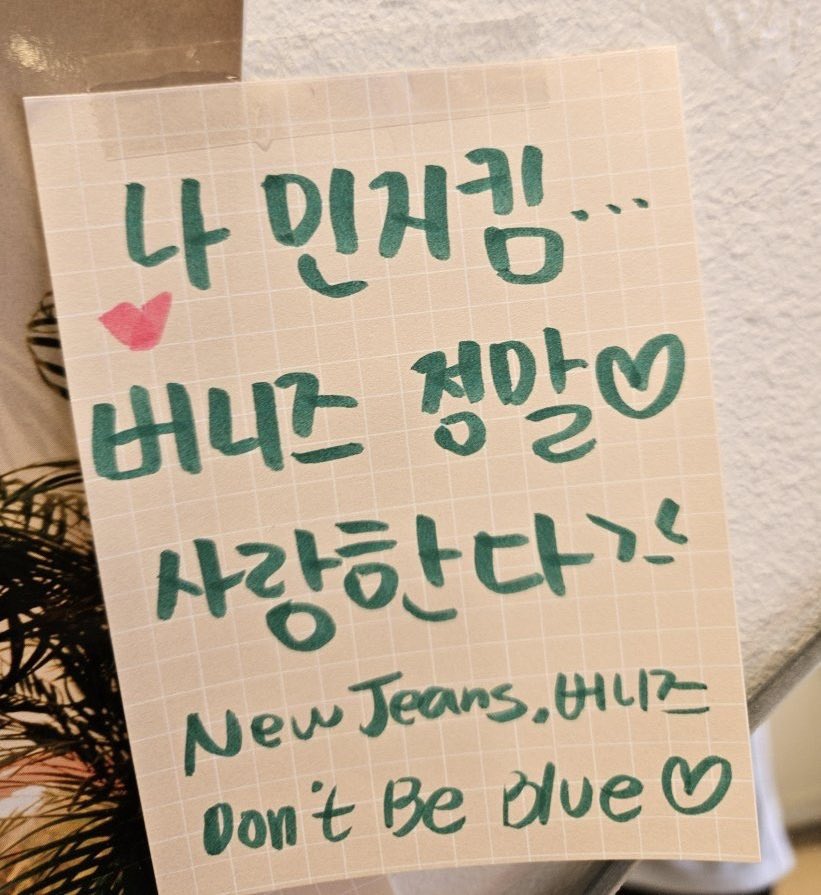 나 민지킴...
버니즈 정말♡
사랑한다>_<
New Jeans, 버니즈
Don't Be Blue♡